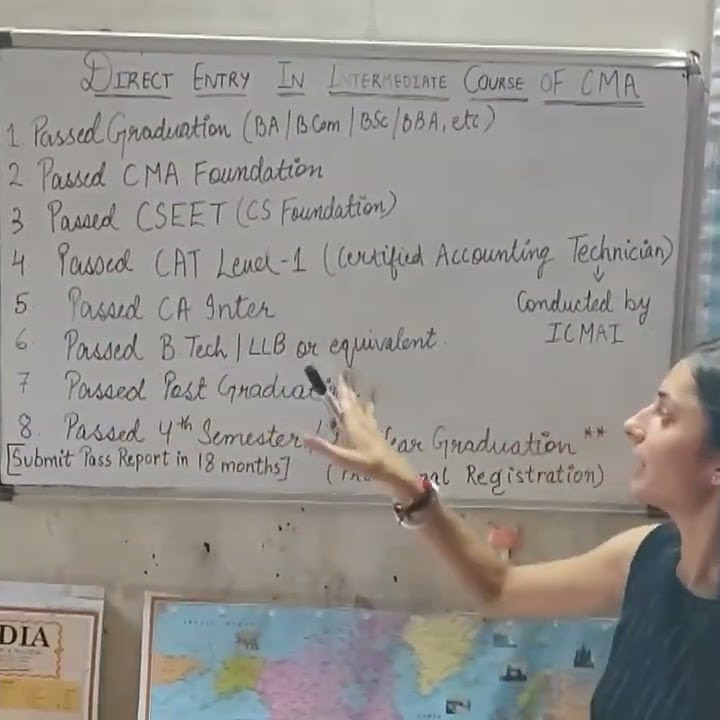 DIRECT ENTRY IN INTERMEDIATE COURSE OF CMA
1. Passed Graduation (BA/BCom/BSc/BBA, etc)
2. Passed CMA Foundation
3 Passed CSEET (CS Foundation)
4 Passed CAT Level-1 (Certified Accounting Technician)
↓
Conducted by
ICMAI
5 Passed CA Inter
6 Passed B.Tech/LLB or equivalent.
7 Passed Post
8. Passed 4th Semester Graduation **
[Submit Pass Report in 18 months] Registration)
DIA